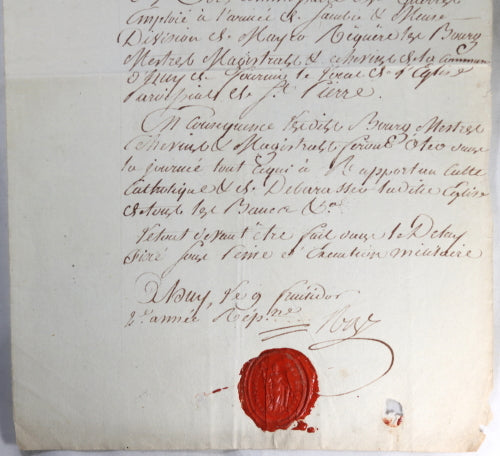 Emploié à l'armée de Sambre & Meuse
Division de Mayer Requere les Bourg
Mestres Magistrats & echevins de la Commune
d'huy de fournir le local de l'Eglise
Paroissiale de St. Pierre.
En Consequence lesdits Bourg Mestres
Echevins & Magistrats feront ôter dans
la journée tout ce qui a Rapport au Culte
Catholique & de Debarasser ladite Eglise
de tous les Bancs &c.
Letout devant être fait dans le Delay
fixé sous Peine d'Execution militaire
A huy, le 9 fruidor
2e. année Rep.ne